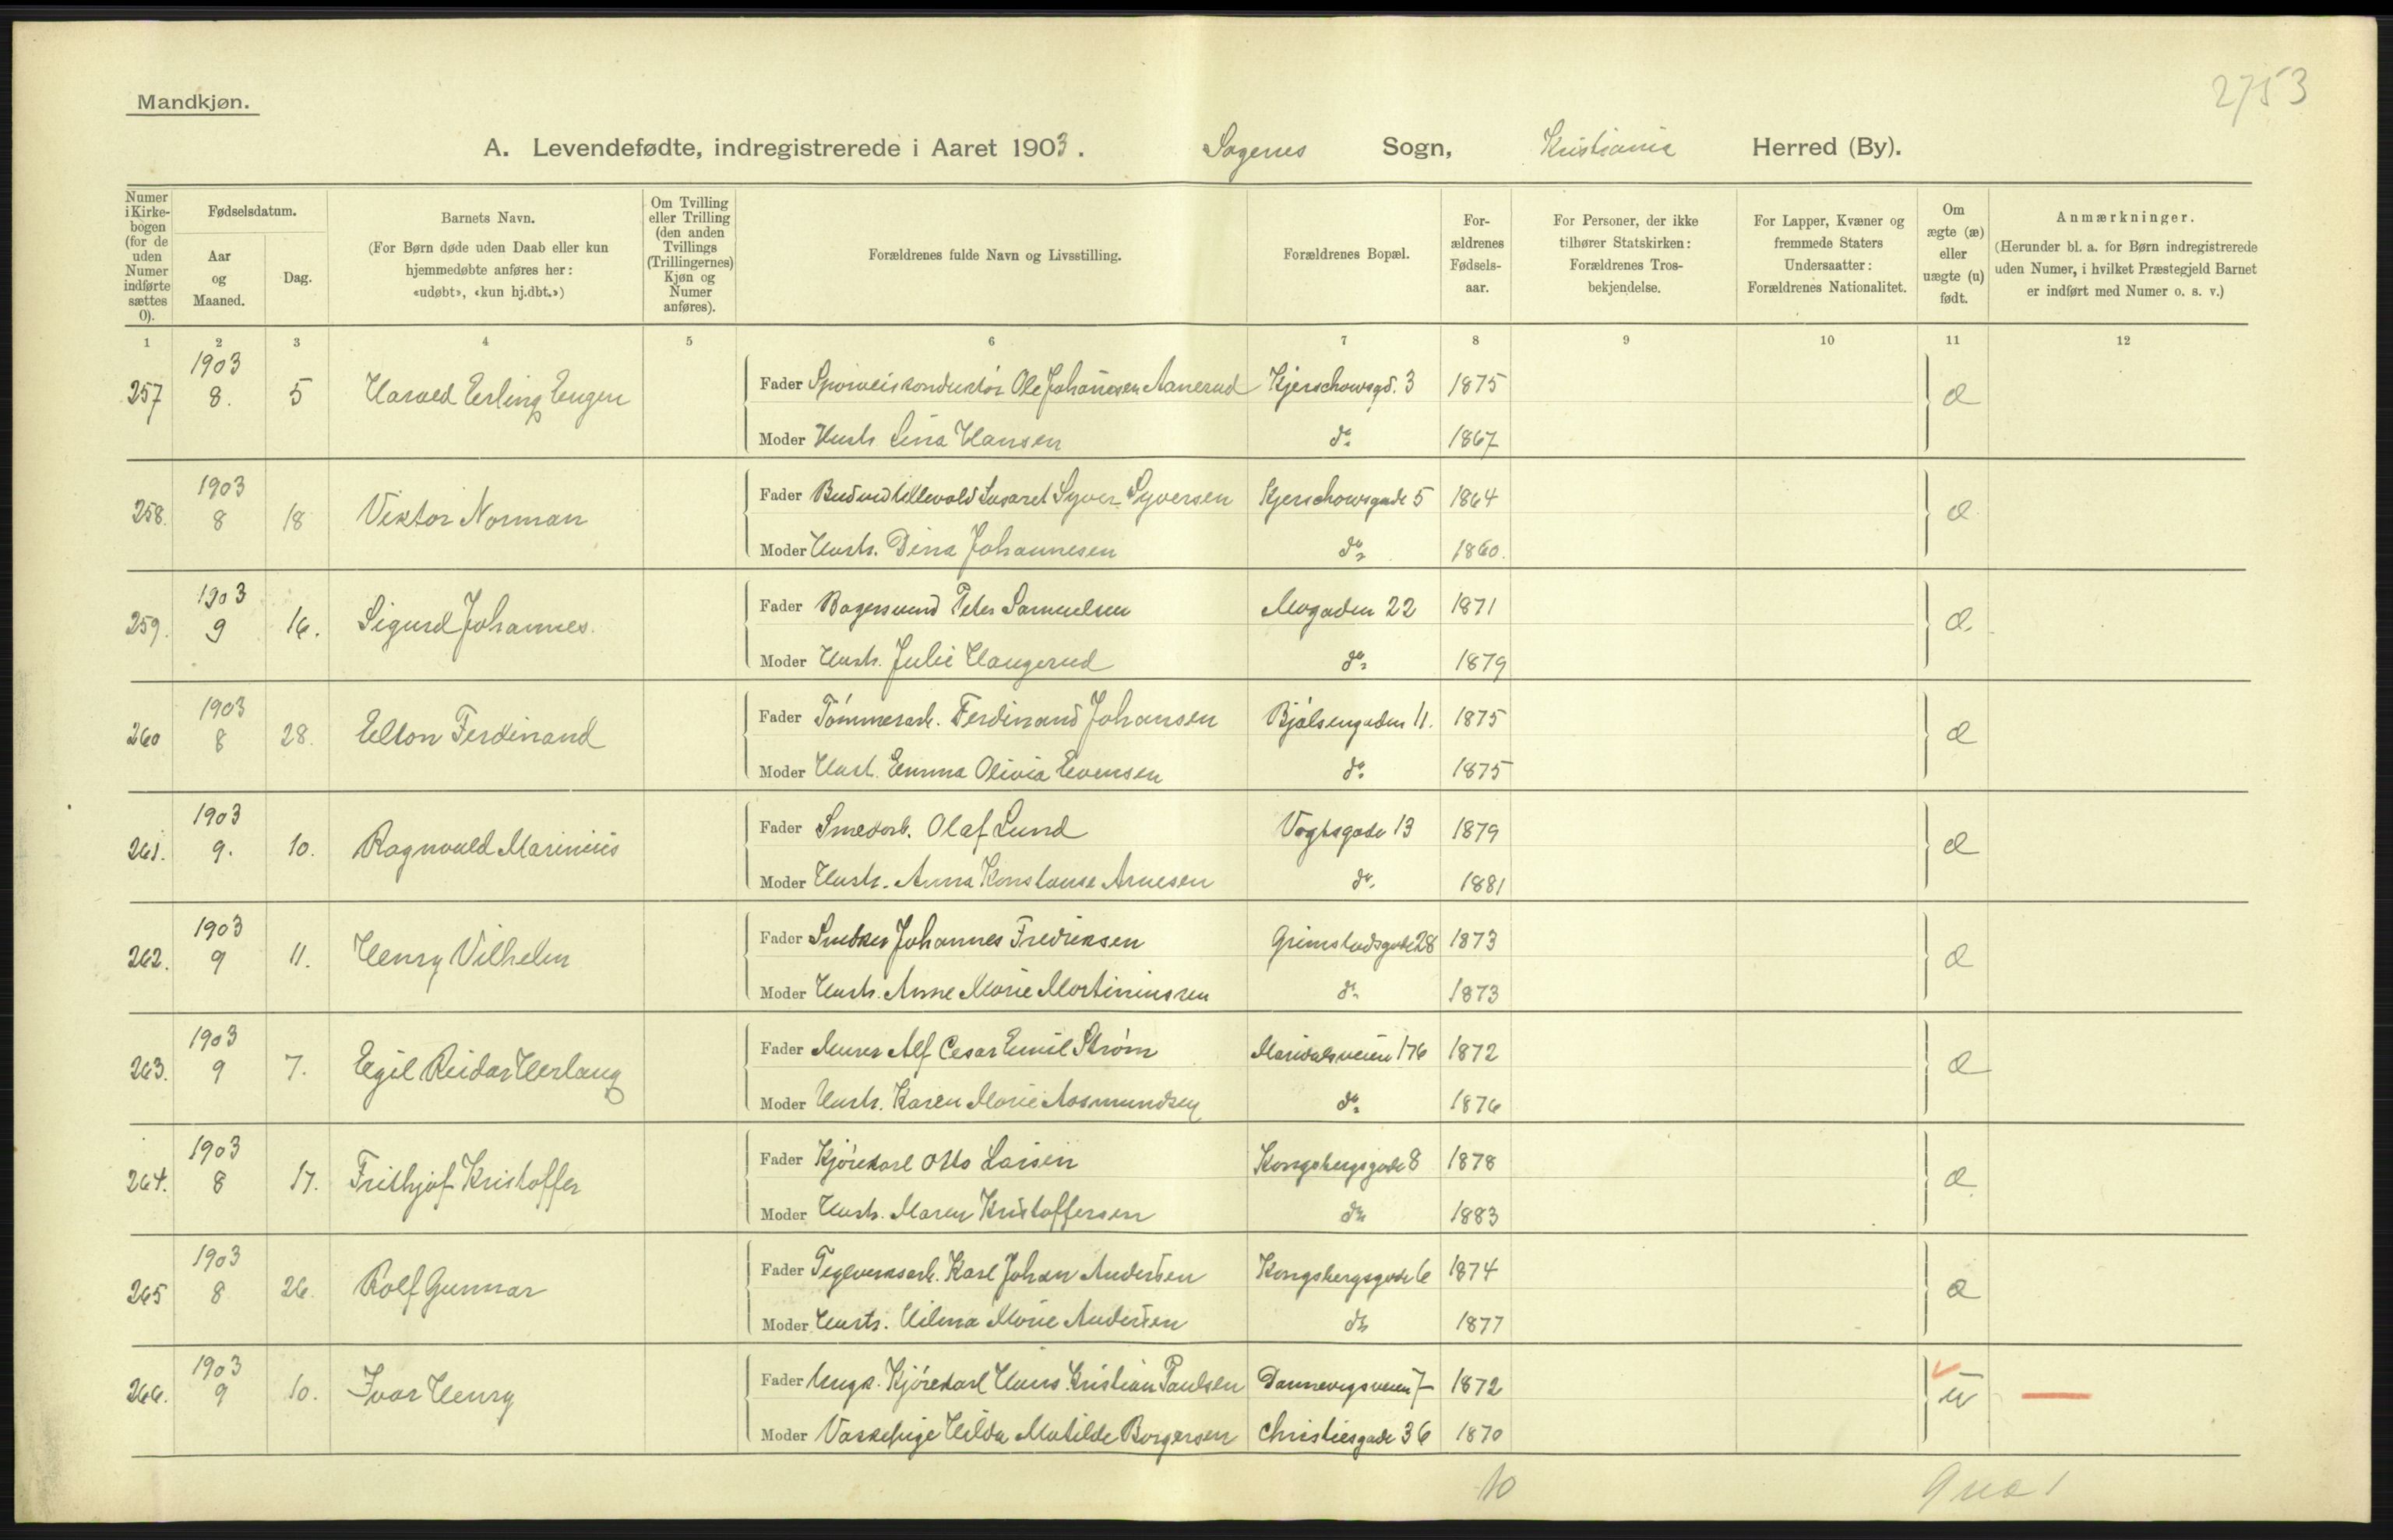 2753
Mandkjøn.
A. Levendefødte, indregistrerede i Aaret 1903. Sagenes Sogn, Kristiania Herred (By).
Numer i Kirkebogen (for de uden Numer indførte sættes 0).
Fødselsdatum.
Aar og Maaned.
Dag.
Barnets Navn.
(For Børn døde uden Daab eller kun hjemmedøbte anføres her: «udøbt», «kun hj.dbt.»)
Om Tvilling eller Trilling (den anden Tvillings (Trillingernes) Kjøn og Numer anføres).
Forældrenes fulde Navn og Livsstilling.
Forældrenes Bopæl.
Forældrenes Fødselsaar.
For Personer, der ikke tilhører Statskirken: Forældrenes Trosbekjendelse.
For Lapper, Kvæner og fremmede Staters Undersaatter: Forældrenes Nationalitet.
Om ægte (æ) eller uægte (u) født.
Anmærkninger.
(Herunder bl. a. for Børn indregistrerede uden Numer, i hvilket Præstegjeld Barnet er indført med Numer o. s. v.)
1 2 3 4 5 6 7 8 9 10 11 12
257 1903 8. 5 Harald Erling Eugen Fader Sporveiskonduktör Ole Johannesen Aanerud Kjerschowsgd. 3 1875 æ
Moder Hustr. Lina Hansen do 1867
258. 1903 8 18 Viktor Norman Fader Bud ved Ullevold Lasaret Syver Syversen Kjerschowsgade 5 1864 æ
Moder Hustr. Dina Johannesen do 1860.
259. 1903 9 16. Sigurd Johannes. Fader Bagersvend Peter Samuelsen Mogaden 22 1871 æ
Moder Hustr. Julie Haugerud do 1879
260 1903 8 28. Elton Ferdinand Fader Tömmerarb. Ferdinand Johansen Bjölsengaden 11. 1875 æ
Moder Hust. Emma Olivia Evensen do 1875
261. 1903 9. 10. Ragnvald Marinius Fader Smedarb. Olaf Lund Vogtsgade 13 1879 æ
Moder Hustr. Anna Konstanse Arnesen do 1881
262. 1903 9 11. Henry Vilhelm Fader Snedker Johannes Fredriksen Grimstadsgade 28 1873 æ
Moder Hustr. Anne Marie Martiniussen do 1873
263. 1903 9 7. Egil Reidar Herlaug Fader Murer Alf Cesar Emil Strøm Maridalsveien 176 1872 æ
Moder Hustr. Karen Marie Aasmundsen do 1876
264. 1903 8 17. Frithjof Kristoffer Fader Kjörekarl Otto Larsen Kongsbergsgade 8 1878 æ
Moder Hustr. Maren Kristoffersen do 1883
265 1903 8 26. Rolf Gunnar Fader Teglverksarb. Karl Johan Andersen Kongsbergsgade 6 1874 æ
Moder Hustr. Hilma Marie Andersen do 1877
266. 1903 9 10. Ivar Henry Fader Ungk. Kjörekarl Hans Kristian Paulsen Dannevigsveien 7 1872 u
Moder Vaskepige Hilda Matilde Borgersen Christiesgade 36 1870
10